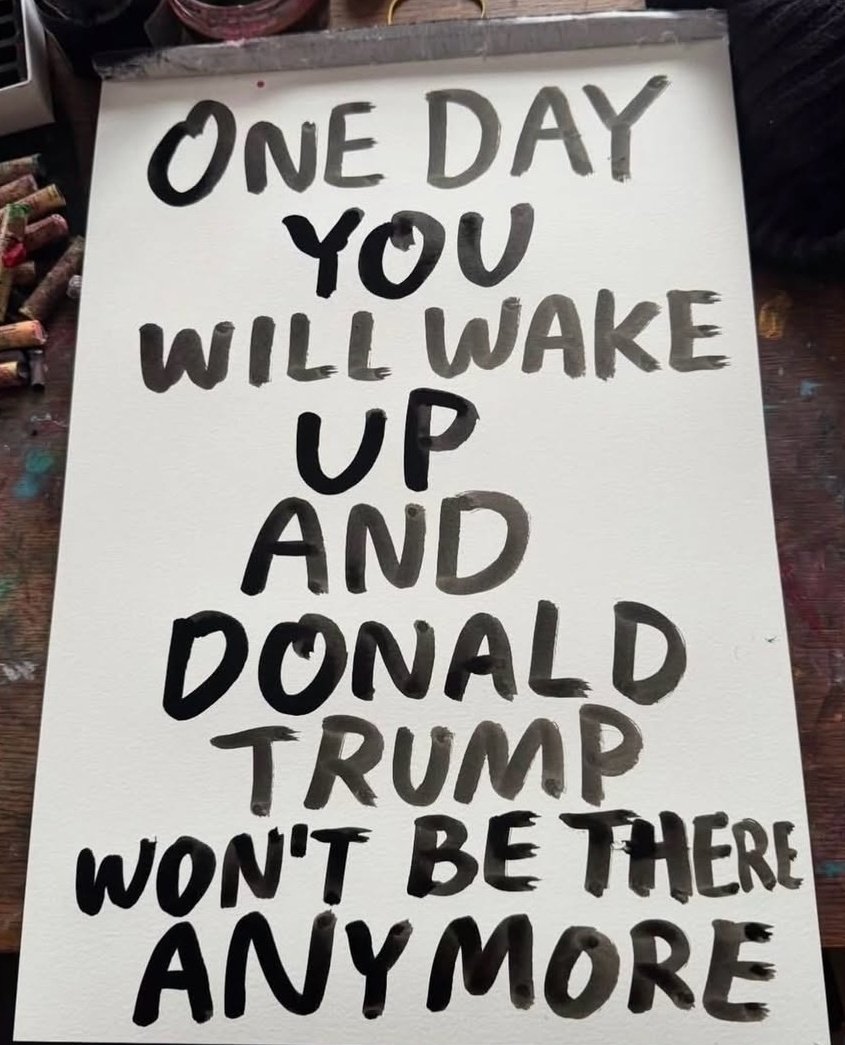 ONE DAY
YOU
WILL WAKE
UP
AND
DONALD
TRUMP
WON'T BE THERE
ANYMORE